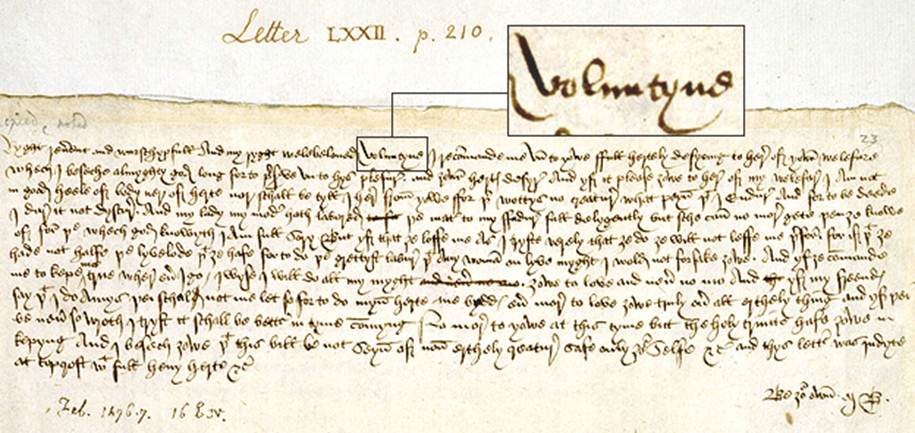 Letter LXXII. p. 210.
Voluntyne
23
Ryght reuerent and wurschypfull And my ryght welebeloued Voluntyne I recommande me vn to yowe full hertely desyring to here of yowr welefare
whech I beseche almyghty god long for to preserve vn to hys plesure and yowr hertys desyre And yf it please yowe to here of my welefare I am not
in good heele of body ner of herte nor schall be tyll I here from yowe ffor þer wottys no creature what peyn þt I endure And for to be deede
I dare it not dyscure And my lady my moder hath labored þe mater to my ffadure full delygently but sche can no more gete þen ye knowe
of for þe whech god knowyth I am full sory But yf that ye loffe me as I tryste verely that ye do ye will not leffe me þerfor for if þt ye
hade not halfe þe lyvelode þt ye hafe for to do þe grettyst labure þt any woman on lyve myght I wold not forsake yowe And yf ye commande
me to kepe me true wherever I go I wyse I will do all my myght yowe to love and never no mo And yf my freendys
say þt I do amys þei schall not me let so for to do myne herte me bydds ever more to love yowe truly over all erthely thing and yf þei
be never so wroth I tryst it schall be better in tyme commyng No more to yowe at this tyme but the holy trinite hafe yowe in
kepyng And I besech yowe þt this bill be not seyn of non erthely creature safe only yowr selfe &c and thys letter was indyte
at Topcroft wt full hevy herte &c
Be yowr own M B.
Feb. 1476-7. 16 E. iv.